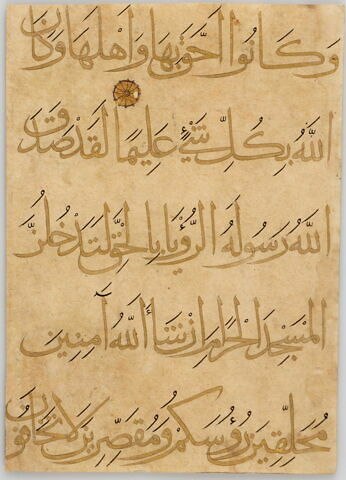 وَكَانُوا أَحَقَّ بِهَا وَأَهْلَهَا وَكَانَ
اللَّهُ بِكُلِّ شَيْءٍ عَلِيمًا لَقَدْ صَدَقَ
اللَّهُ رَسُولَهُ الرُّؤْيَا بِالْحَقِّ لَتَدْخُلُنَّ
الْمَسْجِدَ الْحَرَامَ إِنْ شَاءَ اللَّهُ آمِنِينَ
مُحَلِّقِينَ رُءُوسَكُمْ وَمُقَصِّرِينَ لَا تَخَافُونَ